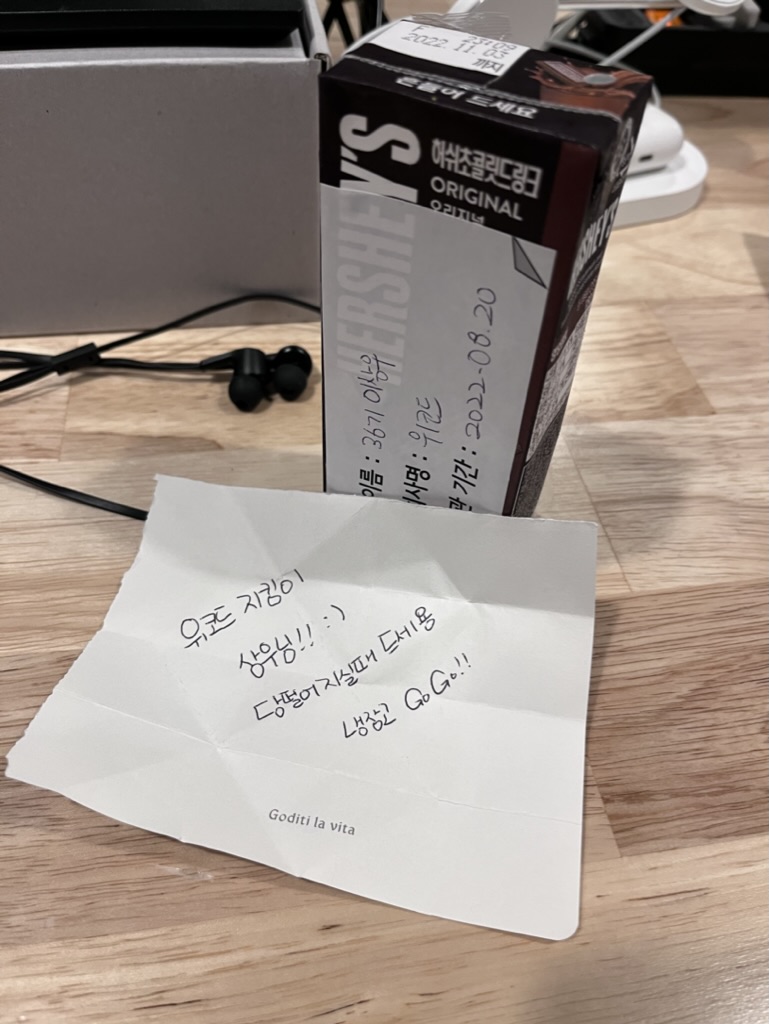 F 23:09
2022.11.03
까지
흔들어 드세요
HERSHEY'S
허쉬초콜릿드링크
ORIGINAL
오리지널
HERSHEY'S
이름 : 36기 이상우
사명 : 위코드
관 기간 : 2022-08.20
위코드 지킴이
상우님!! :)
당떨어지실때 드세용
냉장고 GoGo!!
Goditi la vita